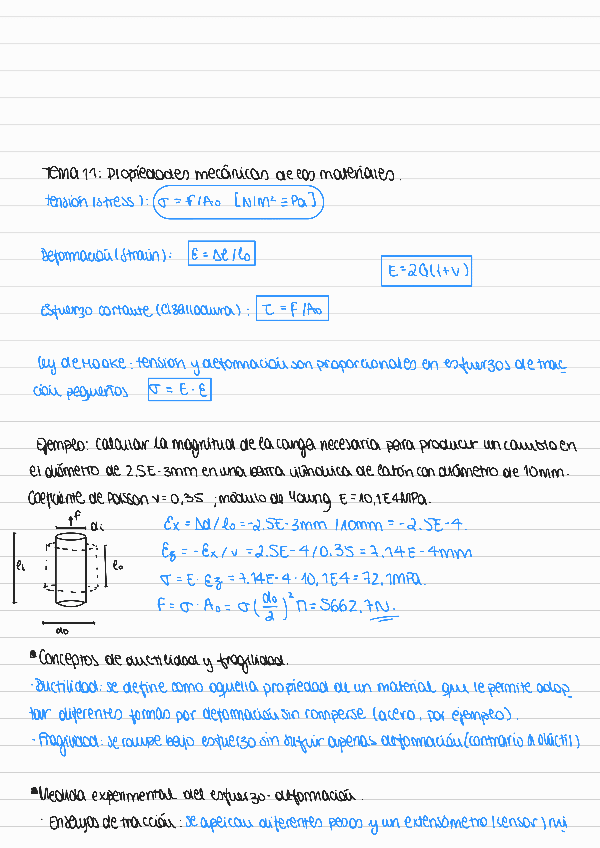 Tema 11: Propiedades mecánicas de los materiales.
tensión (stress): σ = F/A₀ [N/m² ≡ Pa]
Deformación (Strain): ε = Δl/l₀
E = 2G(1+ν)
Esfuerzo cortante (Cizalladura): τ = F/A₀
Ley de HOOKE: tensión y deformación son proporcionales en esfuerzos de trac-
ción pequeños σ = E · ε
Ejemplo: Calcular la magnitud de la carga necesaria para producir un cambio en
el diámetro de 2.5E-3mm en una barra cilíndrica de latón con diámetro de 10mm.
Coeficiente de Poisson ν = 0,35 ; módulo de Young E = 10,1E4MPa.
↑F
di
li
l₀
d₀
εx = Δd/l₀ = -2.5E-3mm/10mm = -2.5E-4.
εz = -εx/ν = 2.5E-4/0.35 = 7.14E-4mm
σ = E · εz = 7.14E-4 · 10,1E4 = 72,1MPa.
F = σ · A₀ = σ(d₀/2)² π = 5662,7N.
*Conceptos de ductilidad y fragilidad.
·Ductilidad: se define como aquella propiedad de un material que le permite adop-
tar diferentes formas por deformación sin romperse (acero, por ejemplo).
·Fragilidad: se rompe bajo esfuerzo sin sufrir apenas deformación (contrario a dúctil)
*Medida experimental del esfuerzo-deformación.
· Ensayos de tracción: se aplican diferentes pesos y un extensómetro (sensor) mi